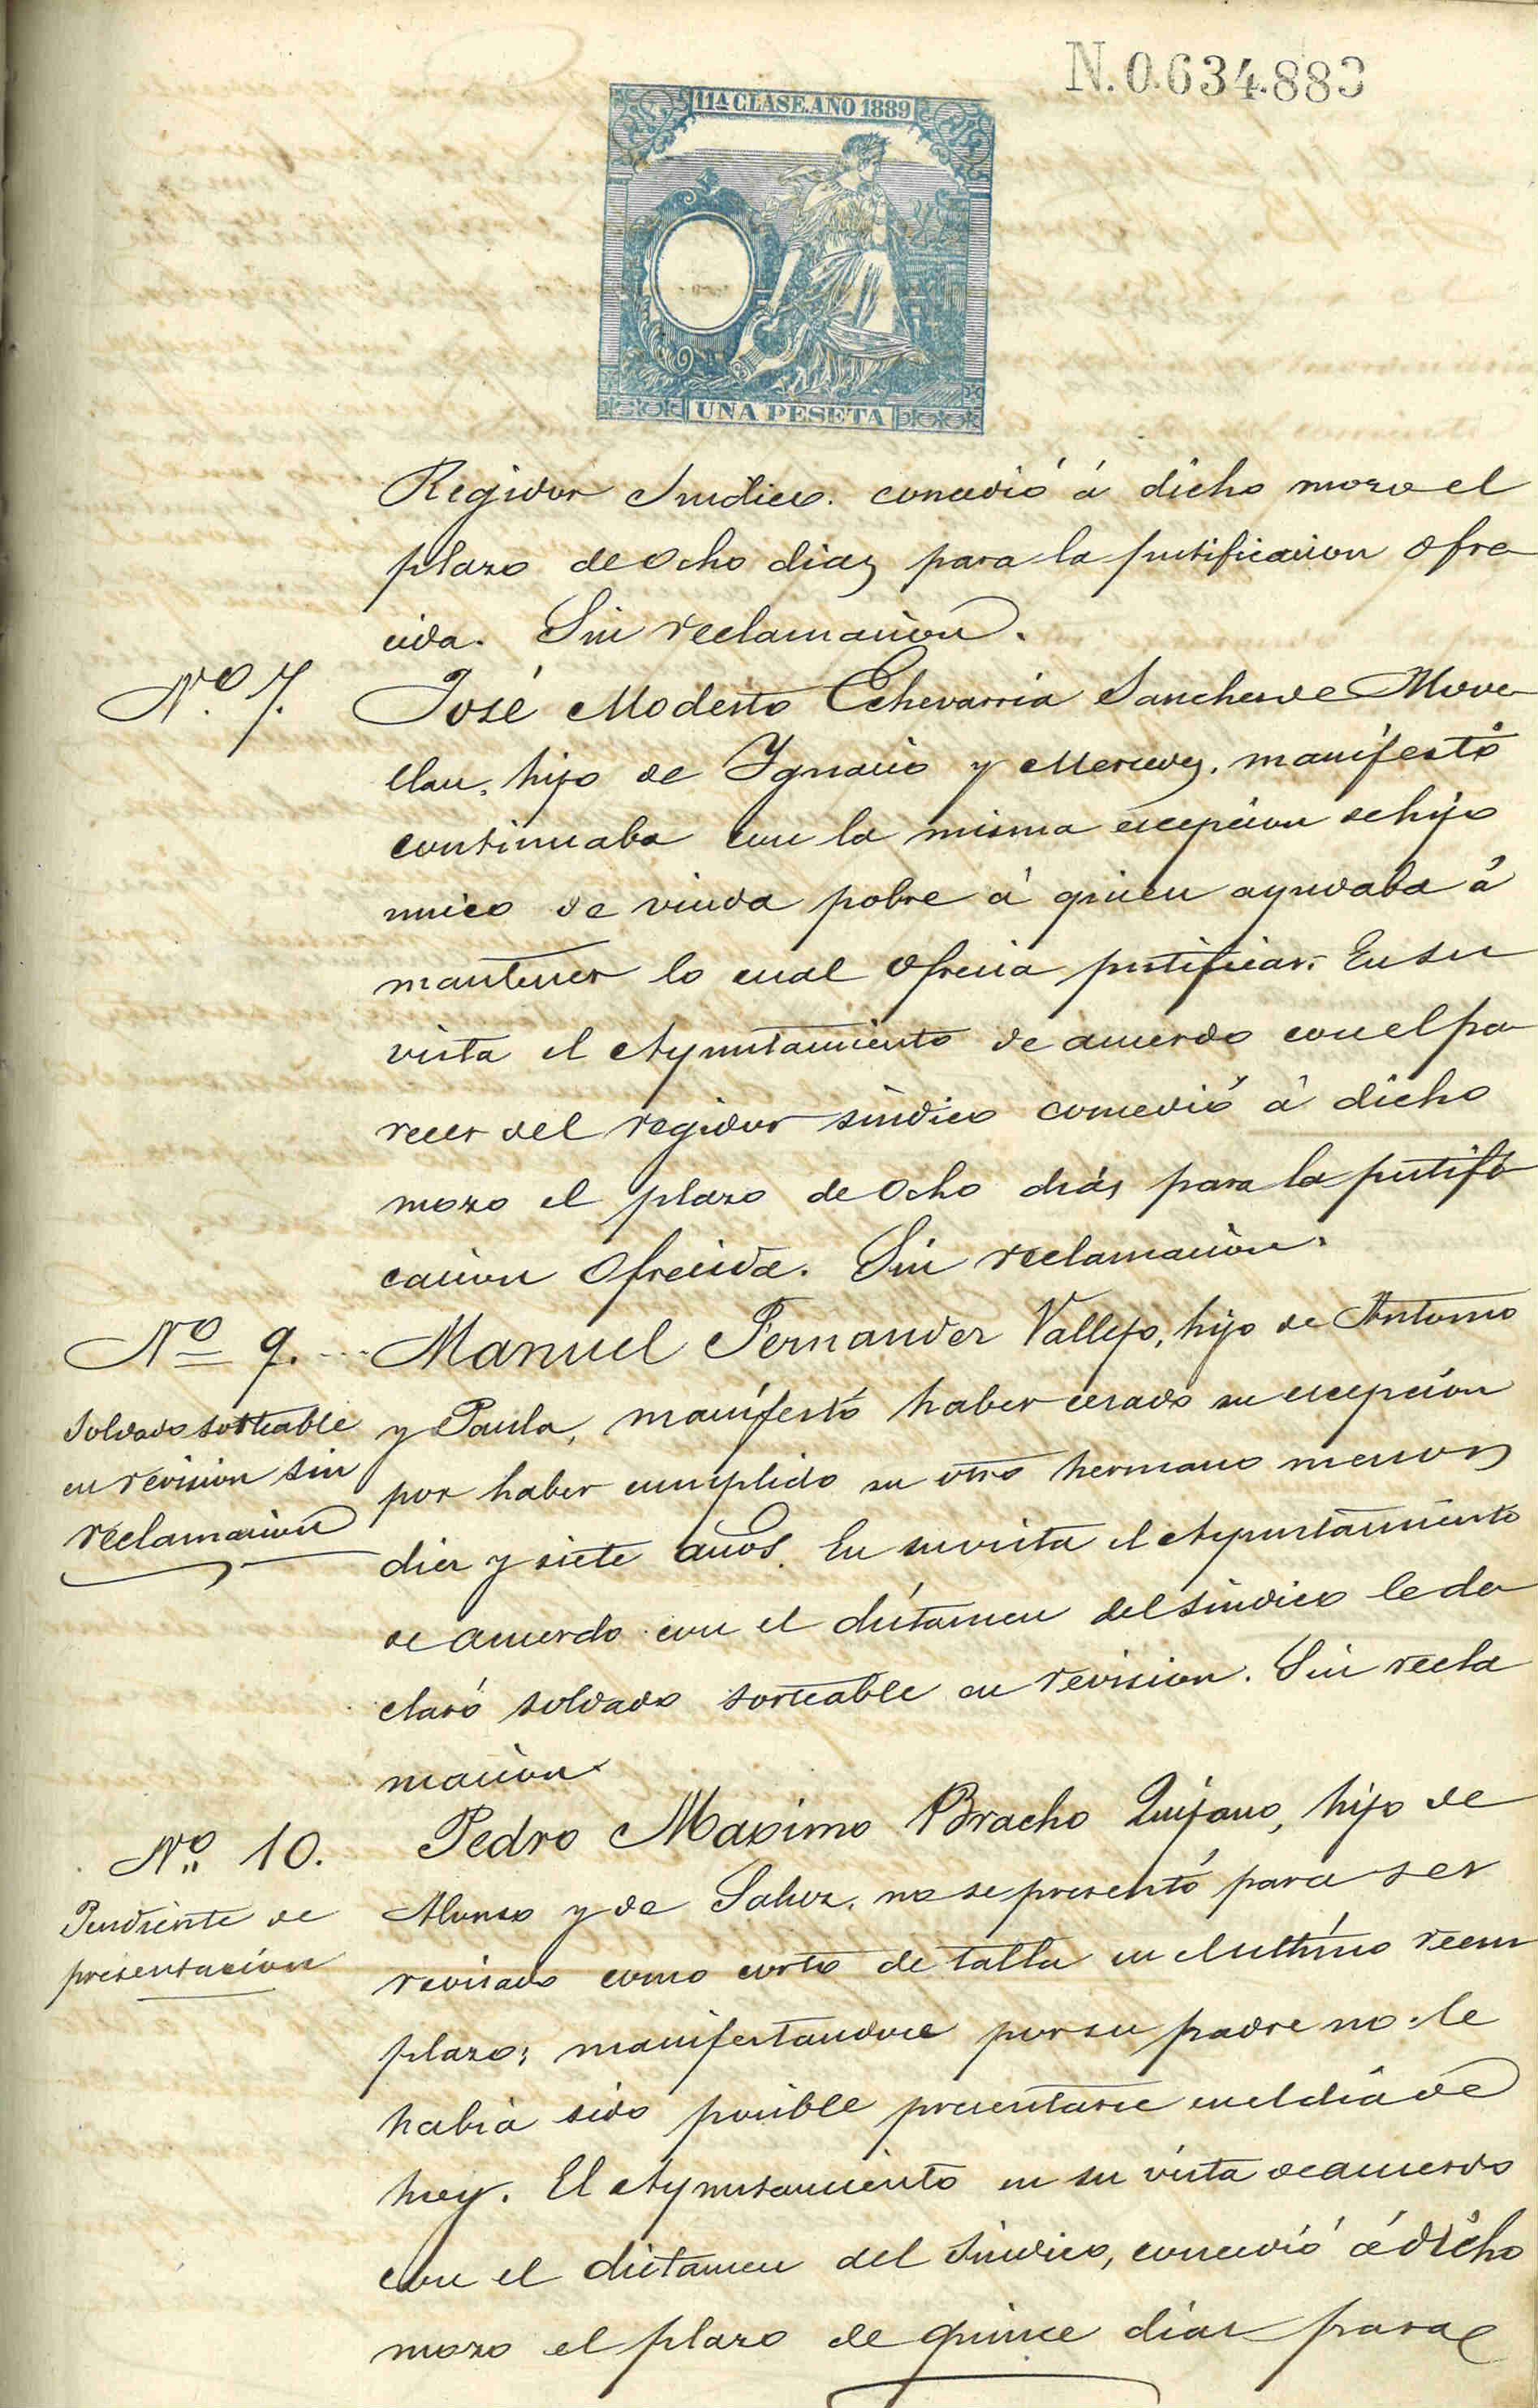 N.0.634.883
11ª CLASE. AÑO 1889
UNA PESETA
Regidor Sindico. concedió á dicho mozo el
plazo de ocho dias para la justificacion ofre
cida. Sin reclamacion.
Nº 7. José Modesto Echevarria Sanchez de Move
llan, hijo de Ygnacio y Mercedes, manifestó
continuaba con la misma escepcion de hijo
unico de viuda pobre á quien ayudaba á
mantener lo cual ofrecia justificar. En su
vista el Ayuntamiento de acuerdo con el pa
recer del regidor sindico concedió á dicho
mozo el plazo de ocho dias para la justifi
cacion ofrecida. Sin reclamacion.
Nº 9. Manuel Fernandez Vallejo, hijo de Antonio
y Paula, manifestó haber cesado su escepcion
por haber cumplido su otro hermano menor
diez y siete años. En su vista el Ayuntamiento
de acuerdo con el dictamen del sindico le de
claró soldado sorteable en revision. Sin recla
macion.
Soldado sorteable
en revision sin
reclamacion
Nº 10. Pedro Maximo Bracho Quijano, hijo de
Alonso y de Saluz. no se presentó para ser
revisado como corto de talla en el ultimo reem
plazo; manifestandose por su padre no le
habia sido posible presentarse en el dia de
hoy. El Ayuntamiento en su vista de acuerdo
con el dictamen del Sindico, concedió á dicho
mozo el plazo de quince dias para
Pendiente de
presentacion